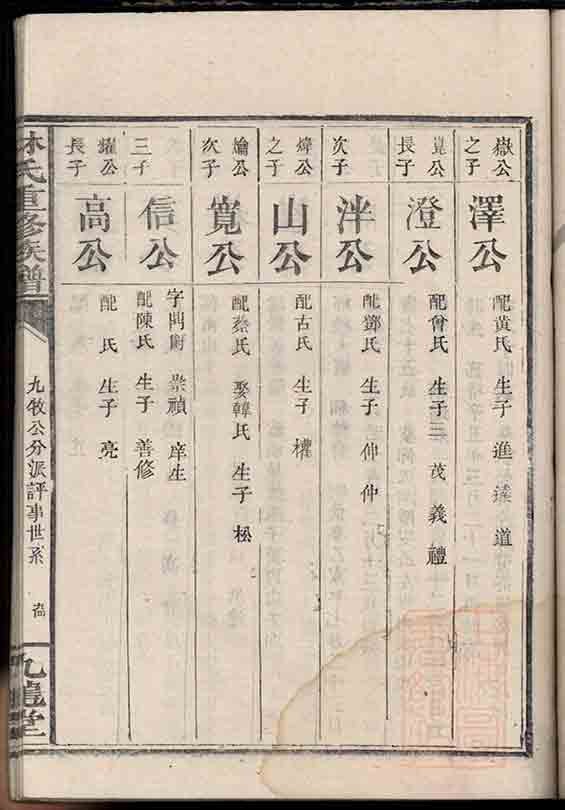 嶽公之子
澤公
配黃氏 生子進達道
崑公長子
澄公
配曾氏 生子三 茂義禮
次子
泮公
配鄧氏 生子仲仲
煒公之子
山公
配古氏 生子權
綸公次子
寬公
配蔡氏 娶韓氏 生子松
三子
信公
字門尉 崇禎庠生
配陳氏 生子善修
耀公長子
高公
配 氏 生子亮
林氏重修族譜
九牧公分派評事世系
九龍堂